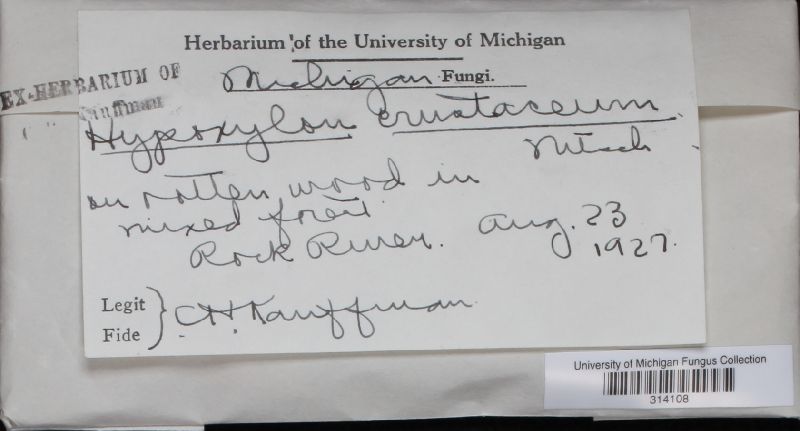 Herbarium of the University of Michigan
Michigan Fungi.
EX-HERBARIUM OF
Kauffman
Hypoxylon crustaceum
Nitsch
on rotten wood in
mixed forest
Rock River. Aug. 23
1927.
Legit
Fide
C.H. Kauffman
University of Michigan Fungus Collection
314108